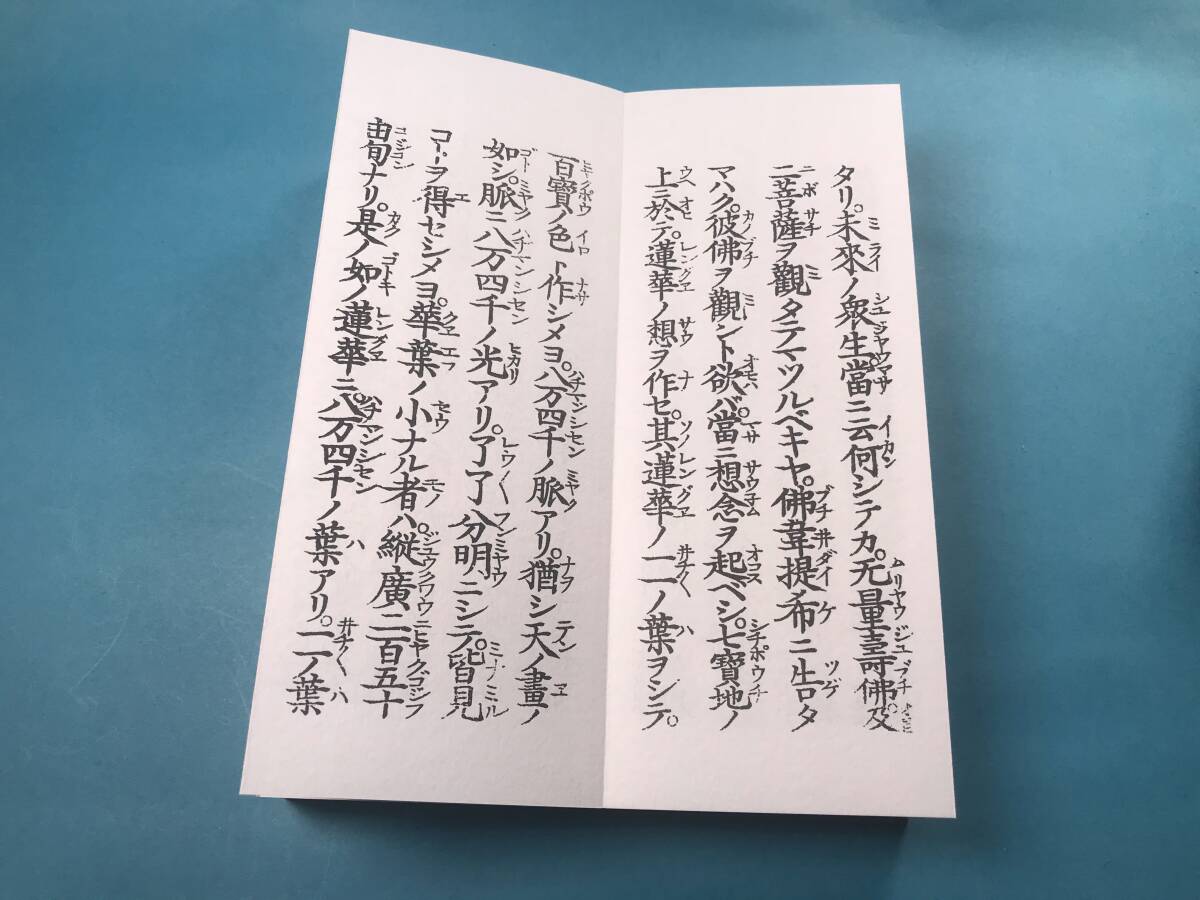 タリ。未來ノ衆生當ニ云何シテカ。无量壽佛及
二菩薩ヲ觀タテマツルベキヤ。佛韋提希ニ告タ
マハク。彼佛ヲ觀ント欲バ。當ニ想念ヲ起ベシ。七寶地ノ
上ニ於テ。蓮華ノ想ヲ作セ。其蓮華ノ一一ノ葉ヲシテ。
百寶ノ色ト作シメヨ。八万四千ノ脈アリ。猶シ天ノ畫ノ
如シ。脈ニ八万四千ノ光アリ。了了分明ニシテ。皆見
コトヲ得セシメヨ。華葉ノ小ナル者ハ。縱廣二百五十
由旬ナリ。是ノ如ノ蓮華ニ。八万四千ノ葉アリ。一一ノ葉